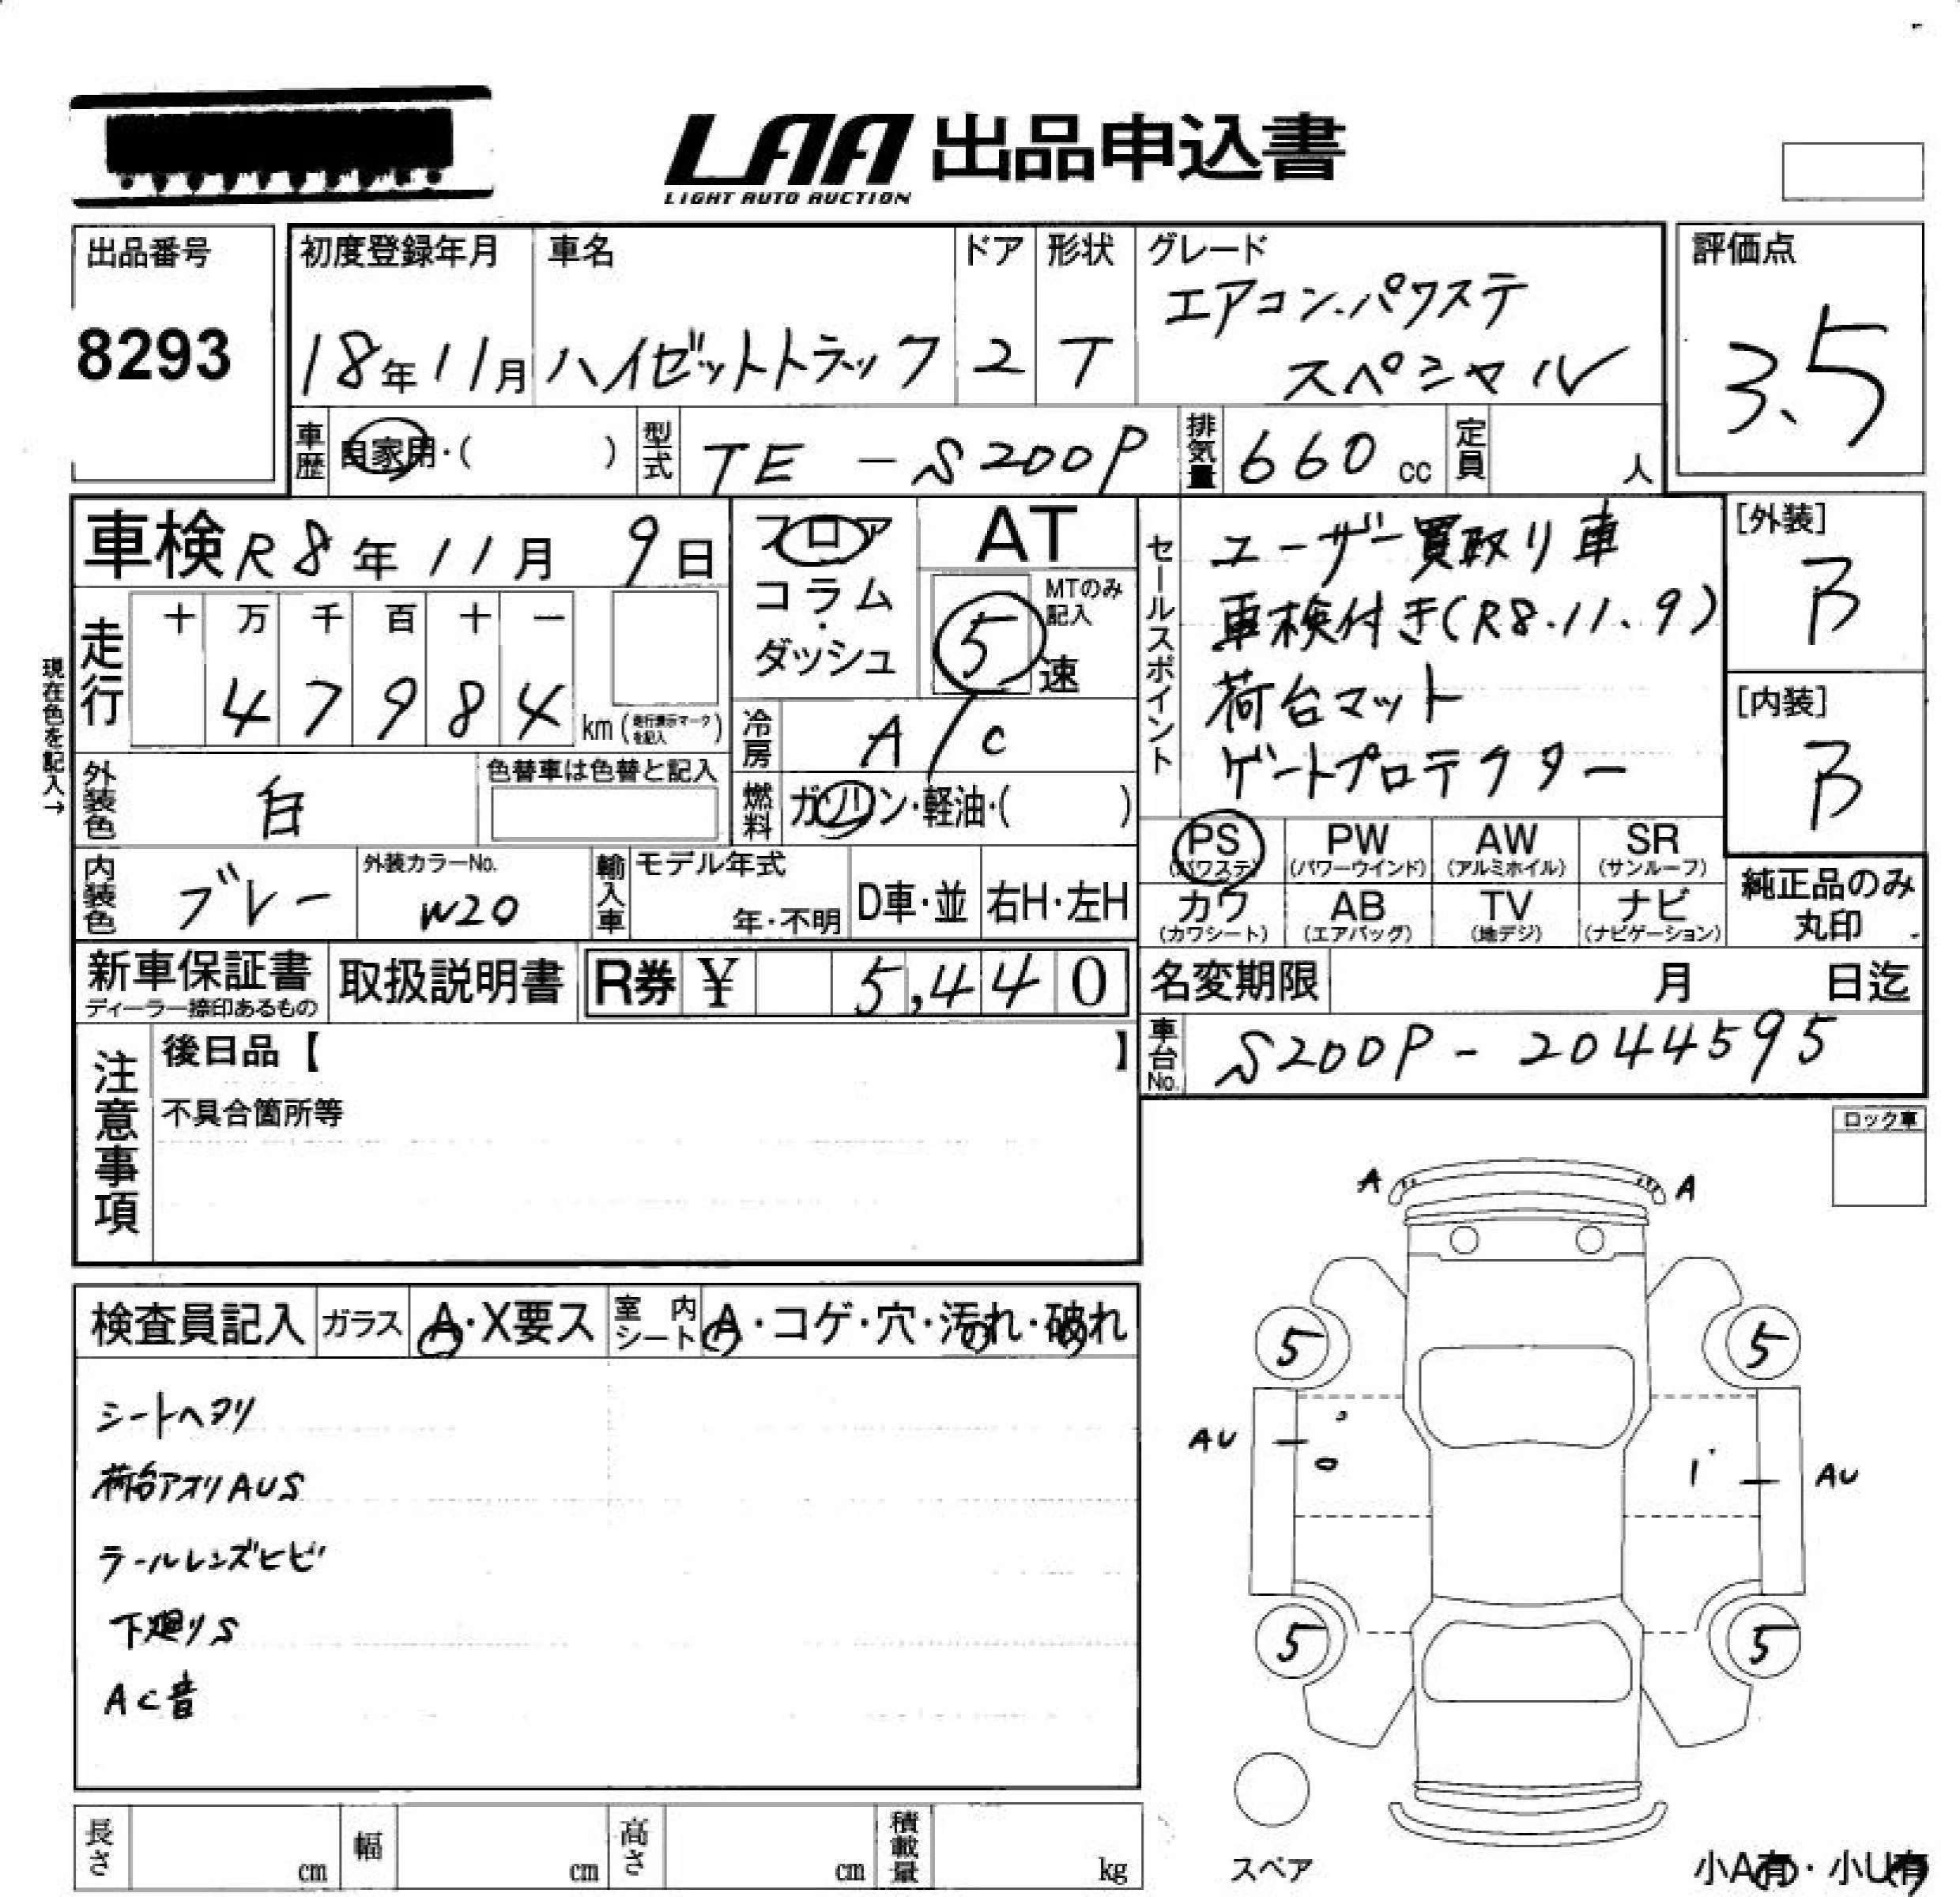 LAA 出品申込書
LIGHT AUTO AUCTION
出品番号
8293
初度登録年月
18年11月
車名
ハイゼットトラック
ドア
2
形状
T
グレード
エアコン.パワステ
スペシャル
評価点
3.5
車歴 自家用・( )
型式 TE-S200P
排気量 660 cc
定員 人
車検 R8年11月9日
フロア
コラム
・
ダッシュ
AT
MTのみ
記入
5 速
現在色を記入→
走行
十 万 千 百 十 一
4 7 9 8 4 km (走行表示マークを記入)
冷房 A/C
燃料 ガソリン・軽油・( )
外装色 白
色替車は色替と記入
内装色 ブレー
外装カラーNo.
W20
輸入車
モデル年式
年・不明
D車・並
右H・左H
セールスポイント
ユーザー買取り車
車検付き(R8.11.9)
荷台マット
ゲートプロテクター
[外装]
B
[内装]
B
PS (パワステ)
PW (パワーウインド)
AW (アルミホイル)
SR (サンルーフ)
カワ (カワシート)
AB (エアバッグ)
TV (地デジ)
ナビ (ナビゲーション)
純正品のみ
丸印
新車保証書
ディーラー捺印あるもの
取扱説明書
R券 ¥ 5,440
名変期限 月 日迄
車台No. S200P-2044595
注意事項
後日品【 】
不具合箇所等
ロック車
検査員記入
ガラス A・X要ス
室内シート A・コゲ・穴・汚れ・破れ
シートヘタリ
荷台アオリAUS
テールレンズヒビ
下廻りS
AC音
A A
5 5
AU AU
5 5
スペア
小A有・小U有
長さ cm
幅 cm
高さ cm
積載量 kg